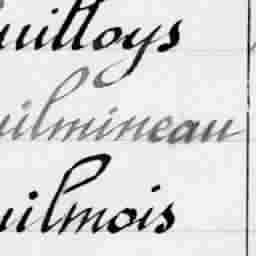 uilloys
uilmineau
uilmois